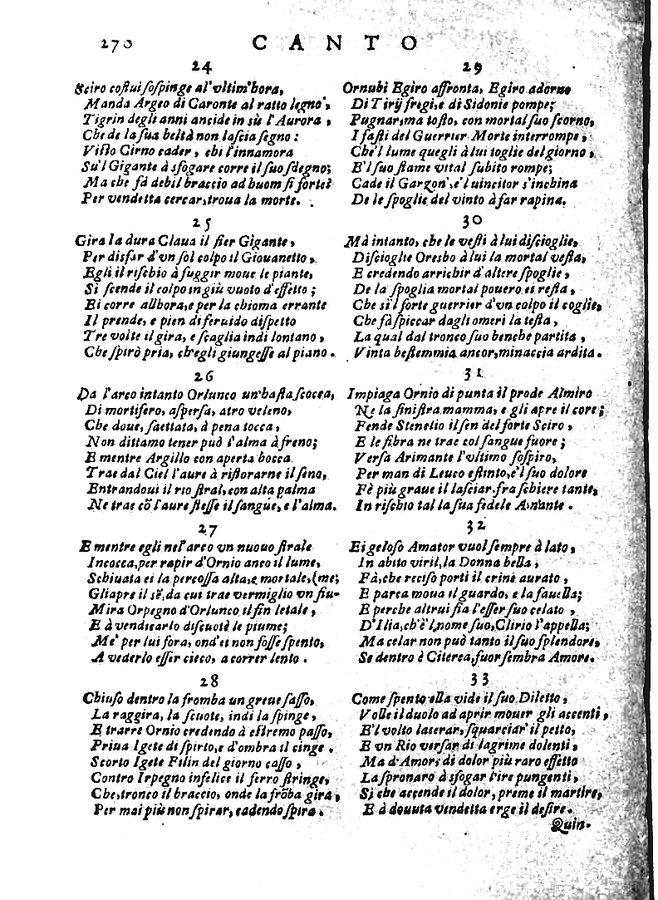 270 CANTO
24
Sciro costui sospinge al'vltim'hora,
Manda Argeo di Caronte al ratto legno,
Tigrin degli anni ancide in sù l'Aurora,
Che de la sua beltà non lascia segno:
Visto Cirno cader, chi l'innamora
Su'l Gigante à sfogare corre il suo sdegno;
Ma che fà debil braccio ad huom sì forte?
Per vendetta cercar, troua la morte.
25
Gira la dura Claua il fier Gigante,
Per disfar d'vn sol colpo il Giouanetto.
Egli il rischio à fuggir moue le piante,
Si scende il colpo in giù vuoto d'effetto;
Ei corre allhora, e per la chioma errante
Il prende, e pien di feruido dispetto
Tre volte il gira, e scaglia indi lontano,
Che spirò pria, ch'egli giungesse al piano.
26
Da l'arco intanto Orlunco vn'hasta scocca,
Di mortifero, aspersa, atro veleno,
Che doue, saettata, à pena tocca,
Non dittamo tener può l'alma à freno;
E mentre Argillo con aperta bocca
Trae dal Ciel l'aure à ristorarne il seno,
Entrandoui il rio stral, con alta palma
Ne trae cō l'aure stesse il sangue, e l'alma.
27
E mentre egli nel'arco vn nuouo strale
Incocca, per rapir d'Ornio anco il lume,
Schiuata ei la percossa alta, e mortale, (me;
Gli apre il sē, da cui trae vermiglio vn fiu-
Mira Orpegno d'Orlunco il fin letale,
E à vendicarlo discuotè le piume;
Me' per lui fora, ond'et non fosse spento,
A vederlo esser cieco, a correr lento.
28
Chiuso dentro la fromba vn greue sasso,
La raggira, la scuote, indi la spinge,
E trarre Ornio credendo à estremo passo,
Priua Igete di spirto, e d'ombra il cinge.
Scorto Igete Pilin del giorno casso,
Contro Irpegno infelice il ferro stringe,
Che, tronco il braccio, onde la frōba gira,
Per mai più non spirar, cadendo spira.
29
Ornubi Egiro affronta, Egiro adorno
Di Tirij fregi, e di Sidonie pompe;
Pugnar, ma tosto, con mortal suo scorno,
I fasti del Guerrier Morte interrompe,
Che'l lume quegli à lui toglie del giorno,
E'l suo stame vital subito rompe;
Cade il Garzon', e'l uincitor s'inchina
De le spoglie del vinto à far rapina.
30
Mà intanto, che le vesti à lui discioglie,
Discioglie Oresbo à lui la mortal vesta,
E credendo arrichir d'altere spoglie,
De la spoglia mortal pouero ei resta,
Che sì'l forte guerrier d'vn colpo il coglie,
Che fà spiccar dagli omeri la testa,
La qual dal tronco suo benche partita,
Vinta bestemmia ancor, minaccia ardita.
31
Impiaga Ornio di punta il prode Almiro
Ne la sinistra mamma, e gli apre il core;
Fende Stenelio il sen del forte Sciro,
E le fibra ne trae col sangue fuore;
Versa Arimante l'vltimo sospiro,
Per man di Leuco estinto, e'l suo dolore
Fè più graue il lasciar, fra schiere tante,
In rischio tal la sua fedele Amante.
32
Ei geloso Amator vuol sempre à lato,
In abito viril, la Donna bella,
Fà, che reciso porti il crine aurato,
E parca moua il guardo, e la fauella;
E perche altrui sia l'esser suo celato,
D'Ilia, ch'è'l nome suo, Clirio l'appella;
Ma celar non può tanto il suo splendore,
Se dentro è Citerea, fuor sembra Amore.
33
Come spento ella vide il suo Diletto,
Volle il duolo ad aprir mouer gli accenti,
E'l volto lacerar, squarciar il petto,
E vn Rio versar di lagrime dolenti,
Ma d'Amor, di dolor più raro effetto
La spronaro à sfogar l'ire pungenti,
Sì che accende il dolor, preme il martire,
E à douuta vendetta erge il desire.
Quin-